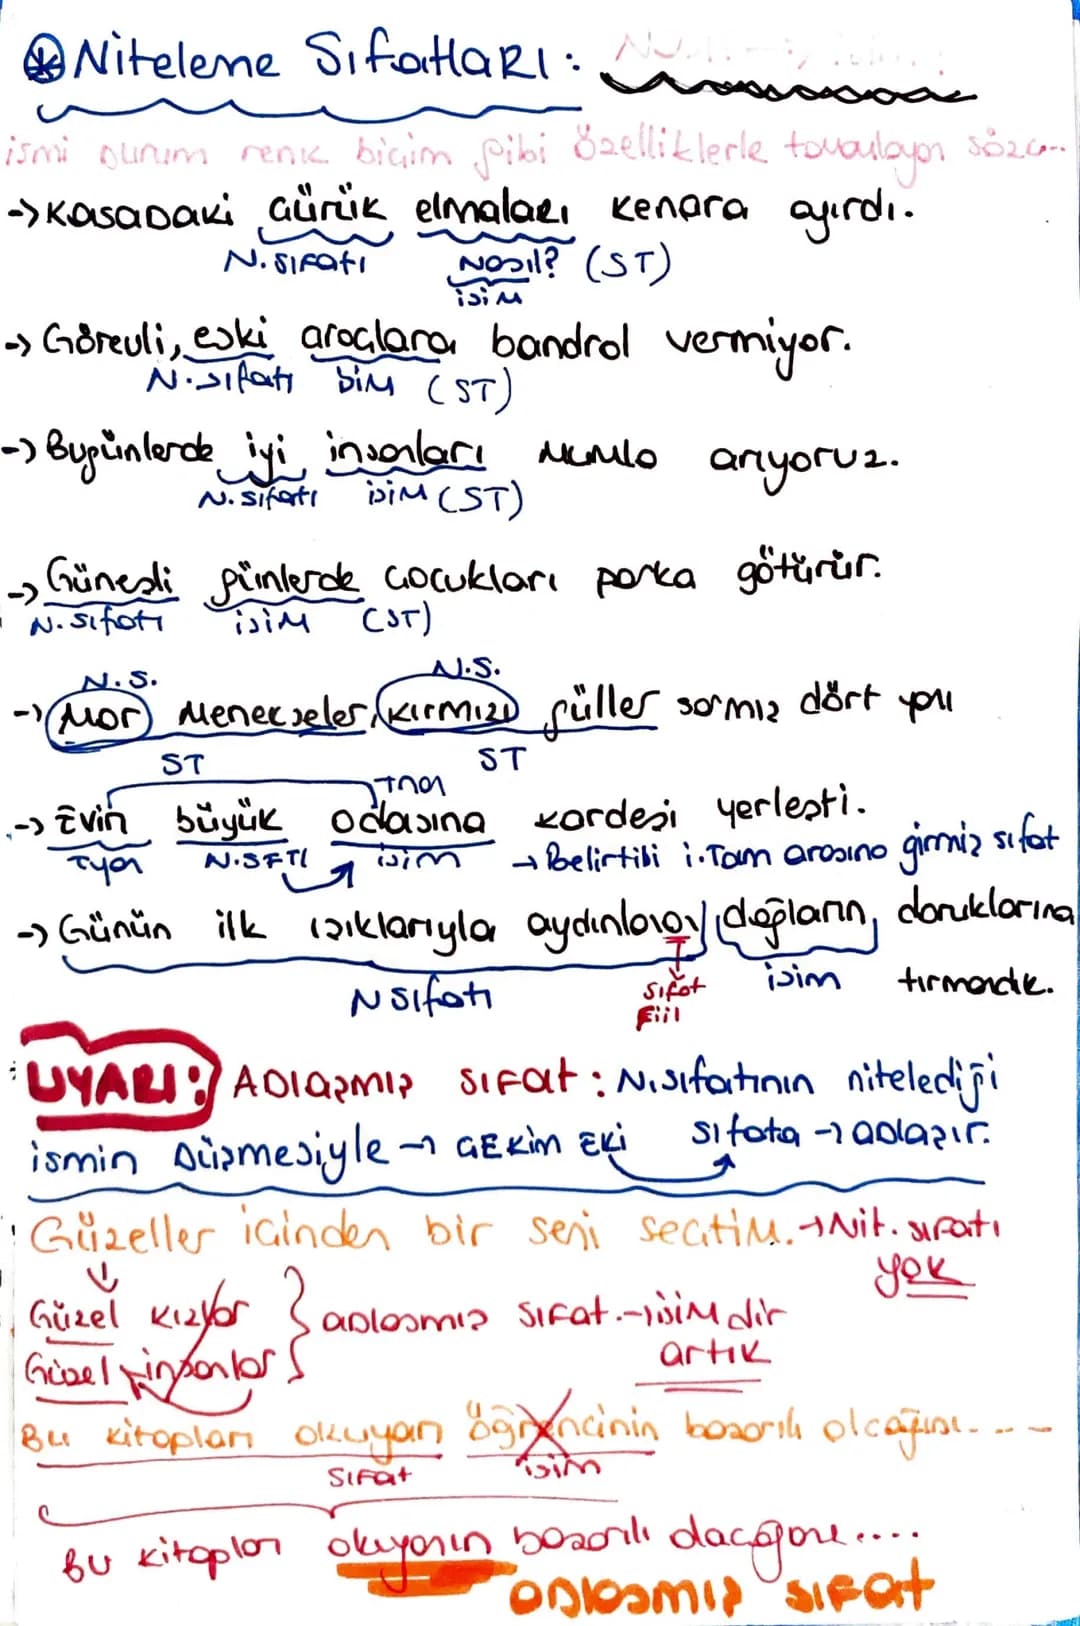 Niteleme Sıfatları:
ismi durum renk biçim gibi özelliklerle tamamlayan sözc...
-> Kasadaki çürük elmaları kenara ayırdı.
N. sıfatı Nasıl? (ST)
isim
-> Görevli, eski araçlara bandrol vermiyor.
N. sıfatı isim (ST)
-> Bugünlerde iyi insanları mumla arıyoruz.
N. sıfatı isim (ST)
-> Güneşli günlerde çocukları parka götürür.
N. sıfatı isim (ST)
N.S. N.S.
-> Mor menekşeler, kırmızı güller sarmış dört yanı
ST ST
Tnan
-> Evin büyük odasına kardeşi yerleşti.
Tyan N.SFTI isim -> Belirtili i. Tam arasına girmiş sıfat
-> Günün ilk ışıklarıyla aydınlanan dağların, doruklarına
N sıfatı sıfat isim tırmandık.
fiil
UYARI: Adlaşmış sıfat: N. sıfatının nitelediği
ismin düşmesiyle -> çekim eki sıfata -> adlaşır.
Güzeller içinden bir seni seçtim. -> Nit. sıfatı
yok
Güzel kızlar } adlaşmış sıfat. -> isimdir
Güzel insanlar artık
Bu kitapları okuyan öğrencinin başarılı olcağını....
sıfat isim
Bu kitapları okuyanın başarılı olacağını....
adlaşmış sıfat